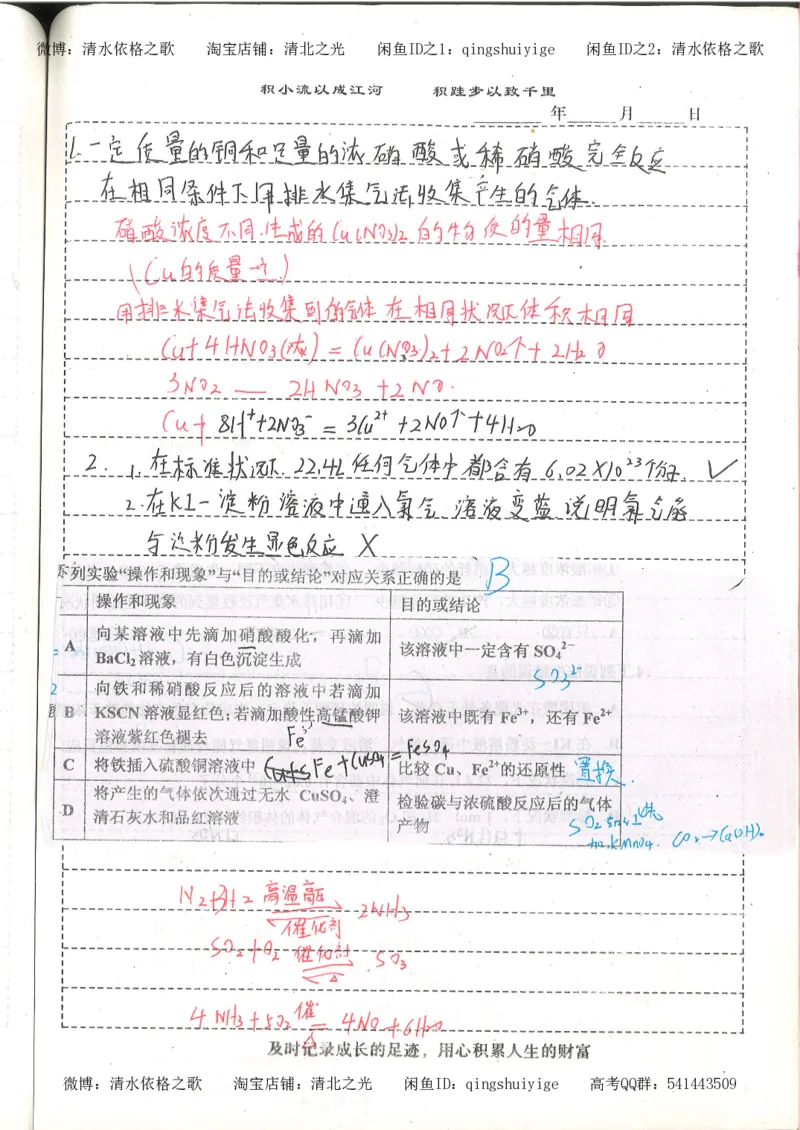 微博：清水依格之歌 淘宝店铺：清北之光 闲鱼ID之1：qingshuiyige 闲鱼ID之2：清水依格之歌
积小流以成江河 积跬步以致千里
年 月 日
1.一定质量的铜和足量的浓硝酸或稀硝酸完全反应
在相同条件下用排水集气法收集产生的气体.
硝酸浓度不同.生成的Cu(NO3)2的物质的量相同.
(Cu的质量一定)
用排水集气法收集到的气体在相同状况下体积相同
Cu+4HNO3(浓)=Cu(NO3)2+2NO2↑+2H2O
3NO2 — 2HNO3+2NO.
Cu+8H⁺+2NO3⁻=3Cu²⁺+2NO↑+4H2O
2. 1.在标准状况下.22.4L任何气体中都含有6.02X10²³个分子. ✓
2.在KI-淀粉溶液中通入氯气 溶液变蓝 说明氯气能
与淀粉发生显色反应 X
下列实验“操作和现象”与“目的或结论”对应关系正确的是 B
操作和现象 目的或结论
A 向某溶液中先滴加硝酸酸化，再滴加BaCl₂溶液，有白色沉淀生成 该溶液中一定含有SO₄²⁻
SO3²⁻
B 向铁和稀硝酸反应后的溶液中若滴加KSCN溶液显红色；若滴加酸性高锰酸钾溶液紫红色褪去 该溶液中既有Fe³⁺，还有Fe²⁺
Fe³⁺
C 将铁插入硫酸铜溶液中 比较Cu、Fe²⁺的还原性 置换.
Fe+CuSO4=FeSO4
D 将产生的气体依次通过无水CuSO₄、澄清石灰水和品红溶液 检验碳与浓硫酸反应后的气体产物
KMnO4. CO2→Ca(OH)2
N2+3H2 高温高压 催化剂 2NH3
SO2+O2 催化剂 △ SO3
4NH3+5O2 催 △ = 4NO+6H2O
及时记录成长的足迹，用心积累人生的财富
微博：清水依格之歌 淘宝店铺：清北之光 闲鱼ID：qingshuiyige 高考QQ群：541443509